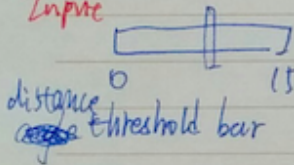 Inpute
0 15
distance
threshold bar